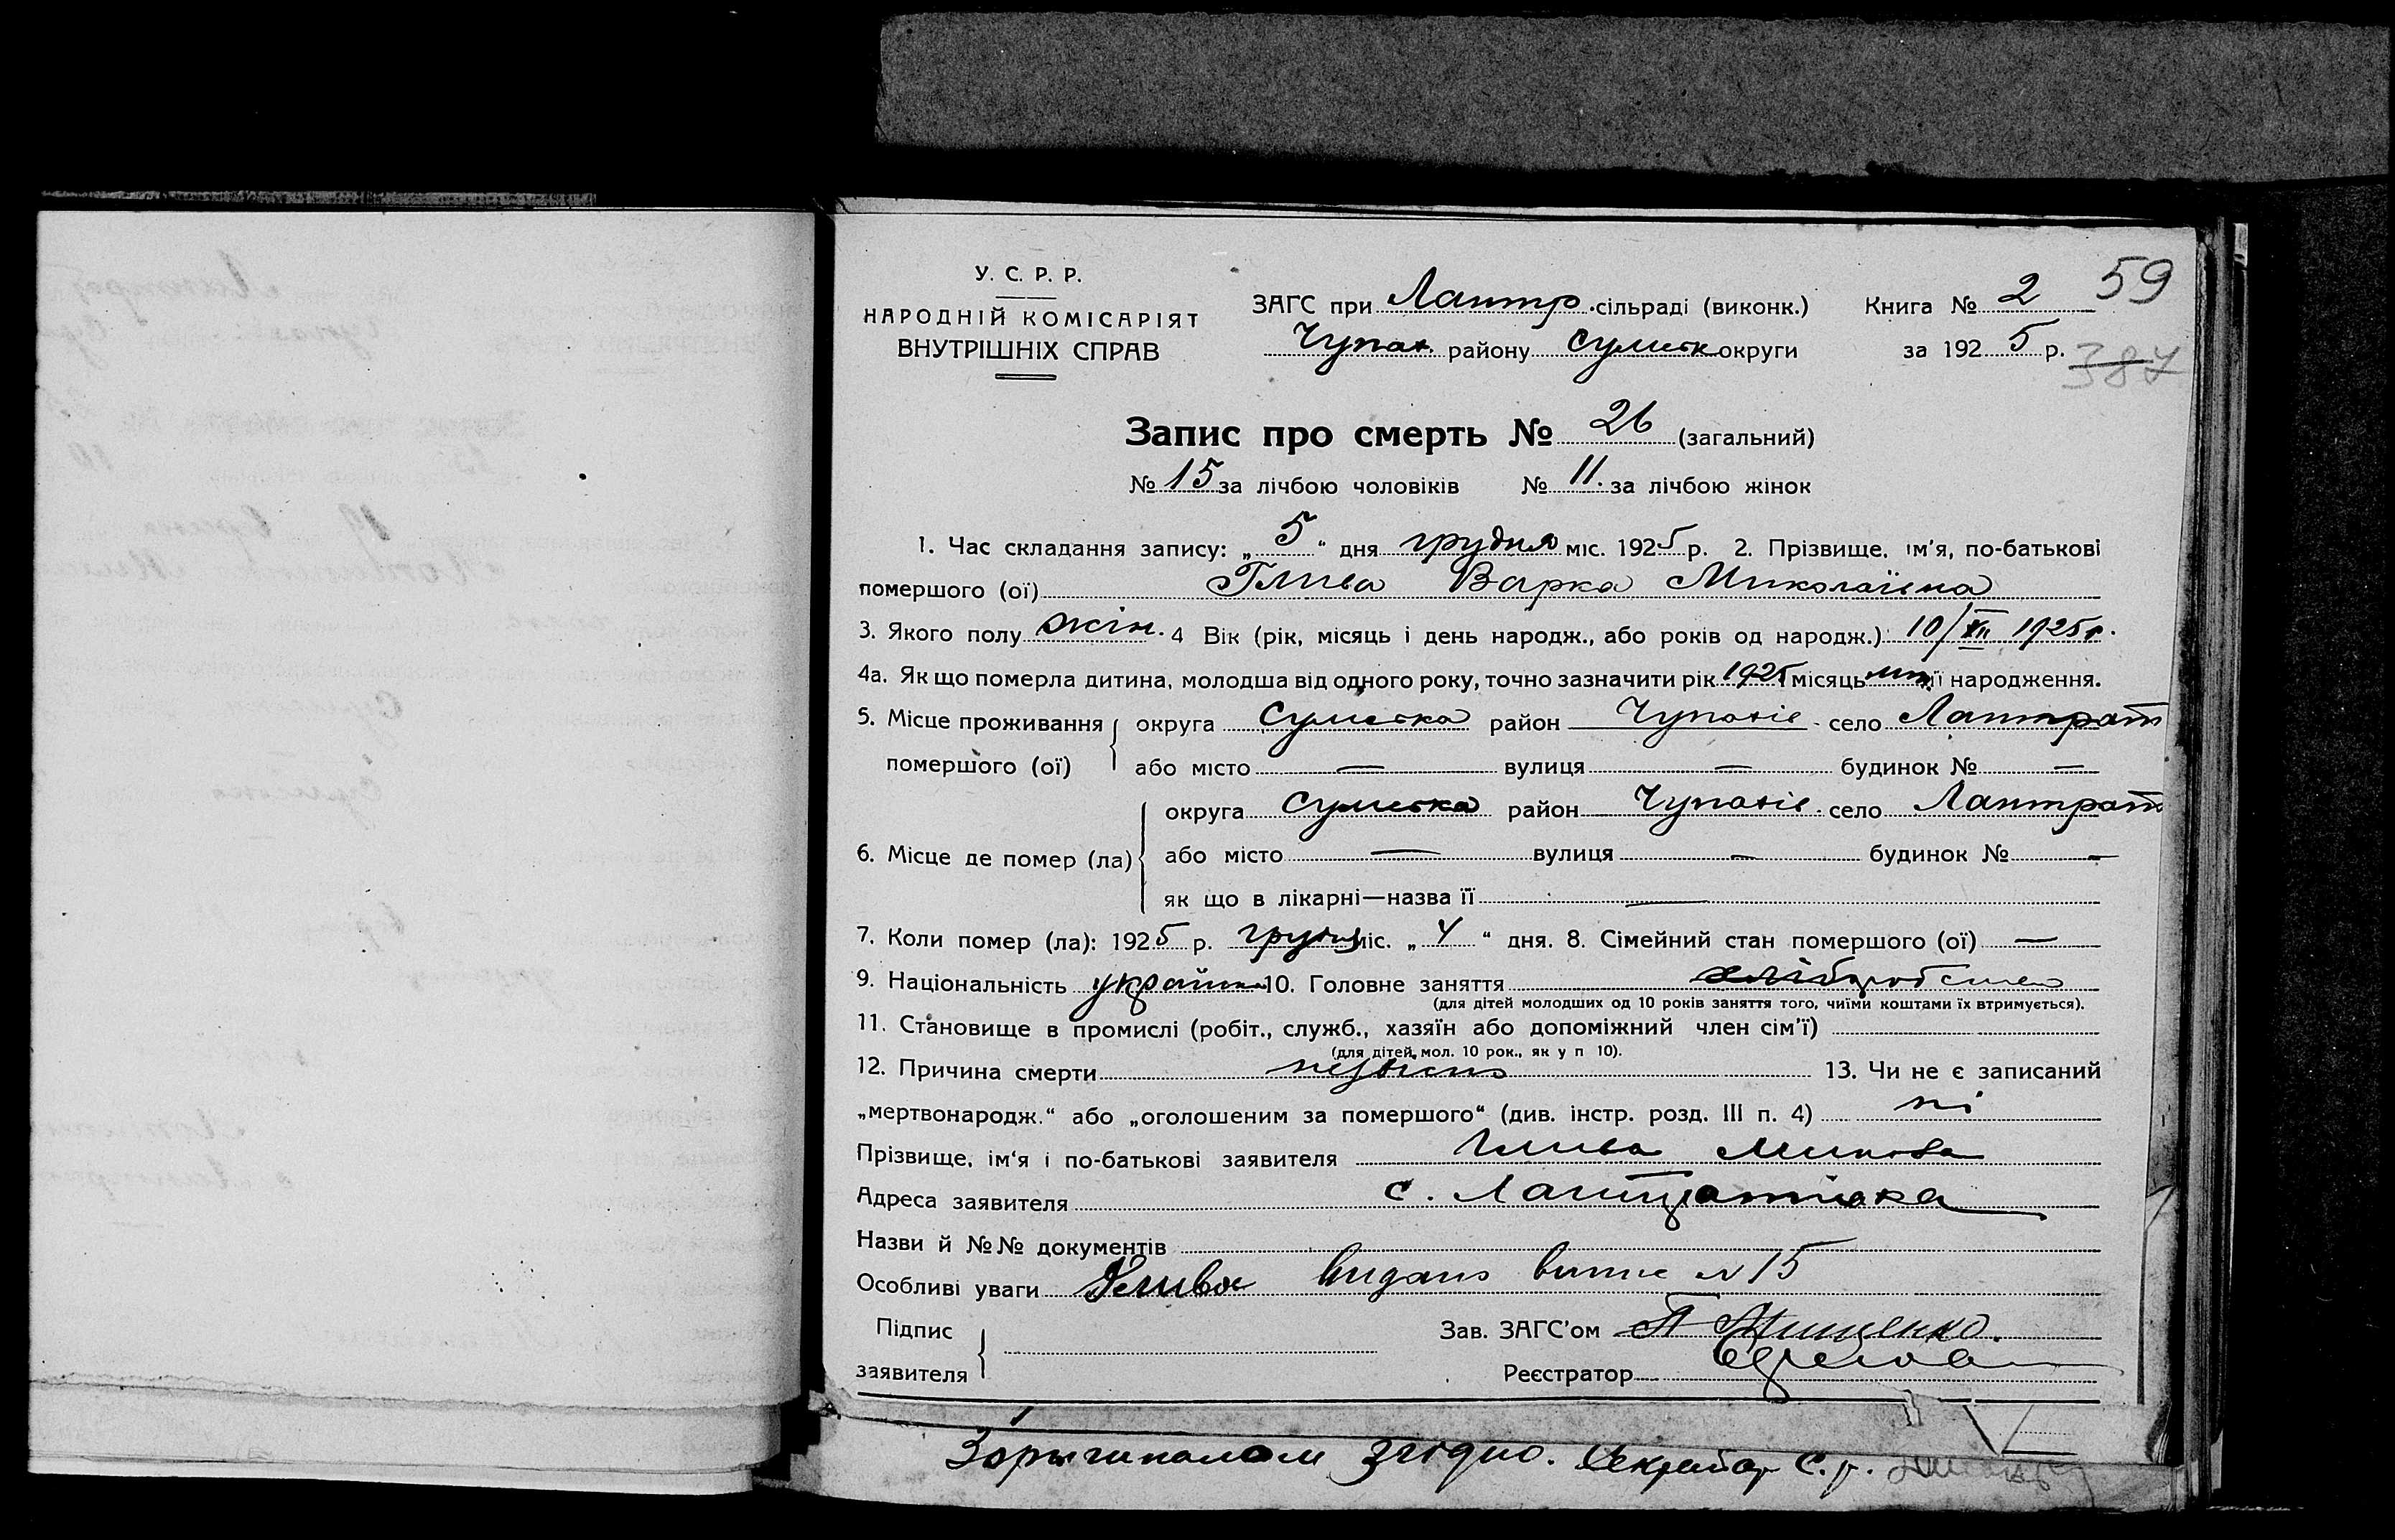 59
У. С. Р. Р.
НАРОДНІЙ КОМІСАРІЯТ
ВНУТРІШНІХ СПРАВ
ЗАГС при Лантр. сільраді (виконк.) Книга № 2
Чупах. району Сумськ округи за 1925 р.
387
Запис про смерть № 26 (загальний)
№ 15 за лічбою чоловіків № 11. за лічбою жінок
1. Час складання запису: „5“ дня грудня міс. 1925 р. 2. Прізвище, ім'я, по-батькові
помершого (ої) Глива Варка Миколаївна
3. Якого полу жін. 4 Вік (рік, місяць і день народж., або років од народж.) 10/XII 1925 р.
4а. Як що померла дитина, молодша від одного року, точно зазначити рік 1925 місяць її народження.
5. Місце проживання округа Сумська район Чупахів. село Лантрат
помершого (ої) або місто — вулиця — будинок № —
округа Сумська район Чупахів. село Лантрат
6. Місце де помер (ла) або місто — вулиця — будинок № —
як що в лікарні—назва її —
7. Коли помер (ла): 1925 р. грудня міс. „4“ дня. 8. Сімейний стан помершого (ої) —
9. Національність україн 10. Головне заняття хліборобство
(для дітей молодших од 10 років заняття того, чиїми коштами їх втримується).
11. Становище в промислі (робіт., служб., хазяїн або допоміжний член сім'ї)
(для дітей, мол. 10 рок., як у п 10).
12. Причина смерти 13. Чи не є записаний
„мертвонародж.“ або „оголошеним за помершого“ (див. інстр. розд. III п. 4) ні
Прізвище, ім'я і по-батькові заявителя Глива Микола
Адреса заявителя с. Лантратівка
Назви й №№ документів
Особливі уваги Глива видано випис № 15
Підпис
заявителя
Зав. ЗАГС'ом П Мищенко.
Реєстратор
З орыгиналом згідно. Секретар С. р.